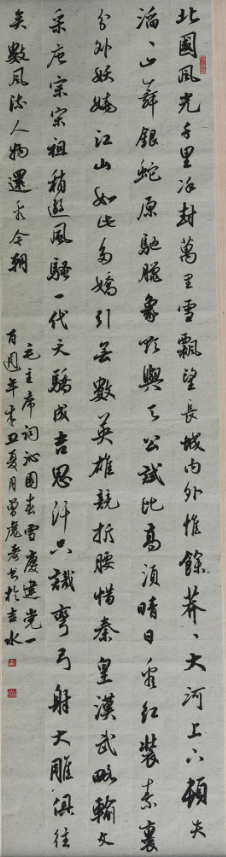 北國風光千里冰封萬里雪飄望長城內外惟餘莽〻大河上下頓失
滔〻山舞銀蛇原馳臘象欲與天公試比高須晴日看紅裝素裹
分外妖嬈江山如此多嬌引無數英雄競折腰惜秦皇漢武略輸文
采唐宗宋祖稍遜風騷一代天驕成吉思汗只識彎弓射大雕俱往
矣數風流人物還看今朝
毛主席詞沁園春雪慶建黨一
百週年辛丑夏月曾慶秀書於吉水